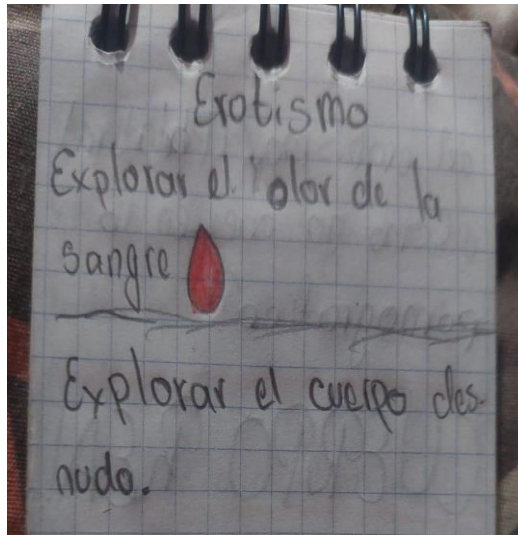 Erotismo
Explorar el olor de la
sangre
Explorar el cuerpo des-
nudo.